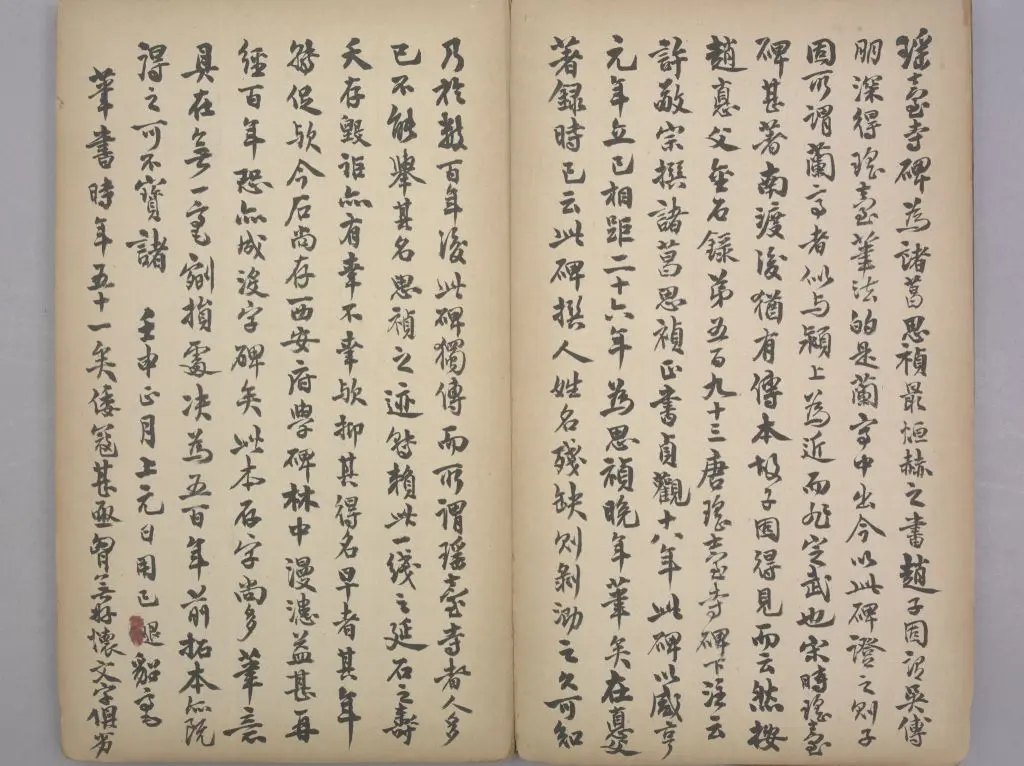 瑶臺寺碑為諸葛思禎最烜赫之書趙子固謂吳傅
朋深得瑤臺筆法的是蘭亭中出今以此碑證之則子
固所謂蘭亭者似与潁上為近而非定武也宋時瑤臺
碑甚著南渡後猶有傳本故子固得見而云然按
趙惪父金石錄第五百九十三唐瑤臺寺碑下注云
許敬宗撰諸葛思禎正書貞觀十八年此碑以咸亨
元年立已相距二十六年為思禎晚年筆矣在惪父
著錄時已云此碑撰人姓名殘缺則剝泐之久可知
乃於數百年後此碑獨傳而所謂瑶臺寺者人多
已不能舉其名思禎之迹皆賴此一綫之延石之壽
夭存毀詎亦有幸不幸歟抑其得名早者其年
特促歟今石尚存西安府學碑林中漫漶益甚再
經百年恐亦成沒字碑矣此本存字尚多筆意
具在無一毫剜損處决為五百年前拓本亦既
得之可不寶諸　壬申正月上元日用已退貂毫
筆書時年五十一矣倭寇甚亟胷無好懷文字俱劣